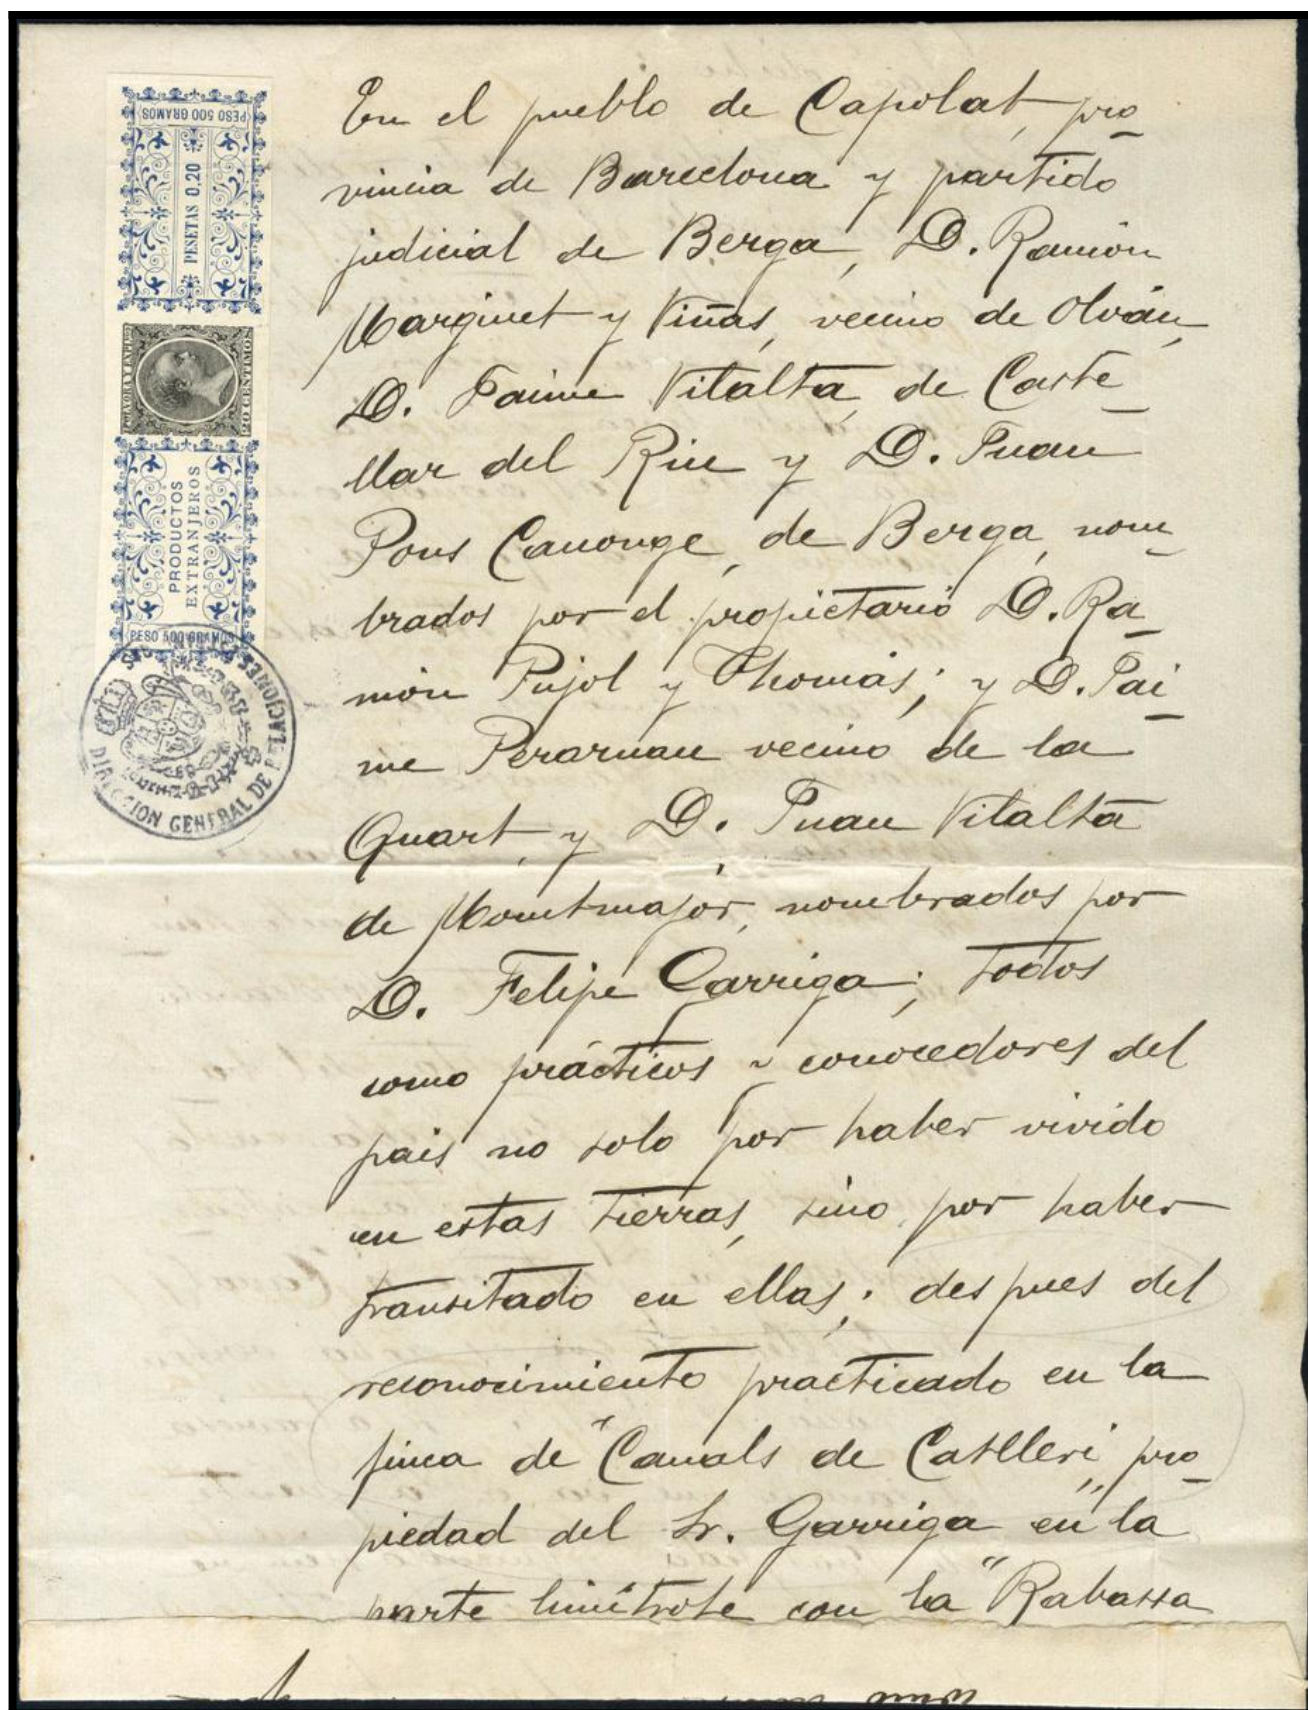 PESO 500 GRAMOS
PESETAS 0.20
20 CENTIMOS
PRODUCTOS
EXTRANJEROS
PESO 500 GRAMOS
DIRECCION GENERAL DE
En el pueblo de Capolat, pro_
vincia de Barcelona y partido
judicial de Berga, D. Ramón
Marginet y Viñas, vecino de Olván,
D. Jaime Vilalta, de Caste_
llar del Riu y D. Juan
Pons Canonge, de Berga, nom_
brados por el propietario D. Ra_
món Pujol y Thomás; y D. Jai_
me Perarnau vecino de la
Quart, y D. Juan Vilalta
de Montmajor, nombrados por
D. Felipe Garriga; todos
como prácticos y conocedores del
pais no solo por haber vivido
en estas tierras, sino por haber
transitado en ellas; despues del
reconocimiento practicado en la
finca de "Canals de Catlleri" pro_
piedad del Sr. Garriga en la
parte limítrofe con la "Rabassa